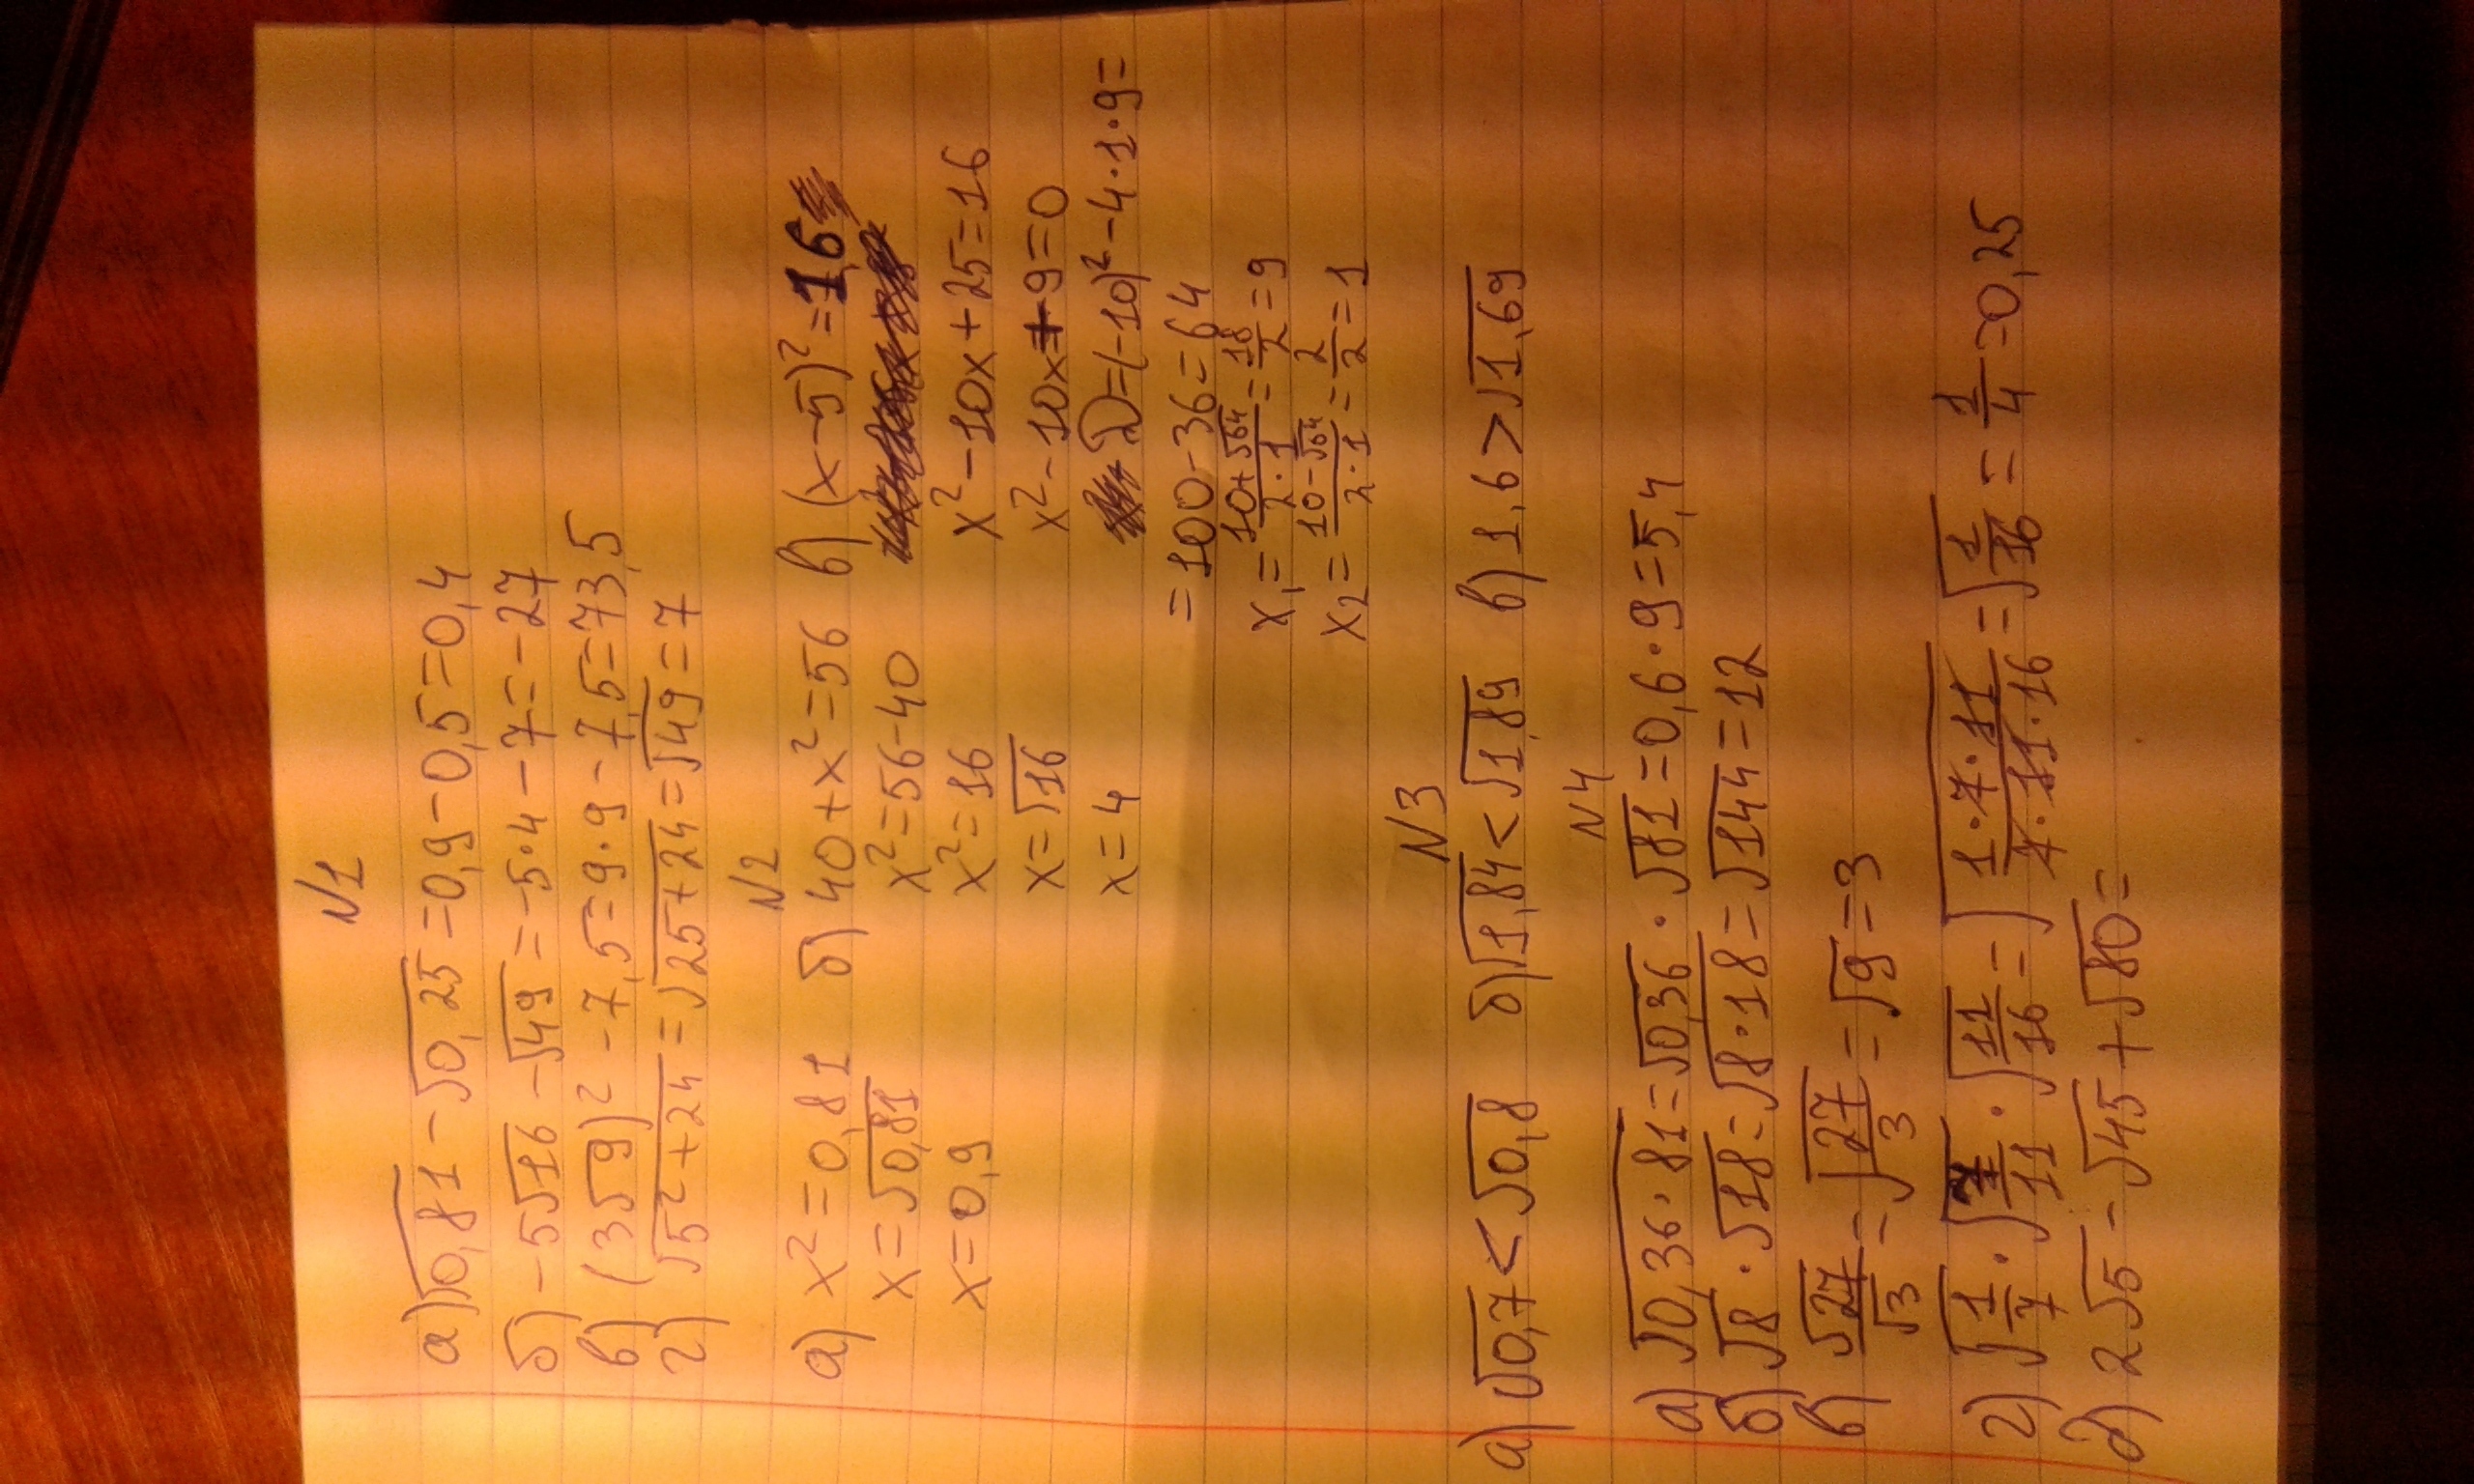 N1
а) √0,81 - √0,25 = 0,9 - 0,5 = 0,4
б) -5√16 - √49 = -5·4 - 7 = -27
в) (3√9)² - 7,5 = 9·9 - 7,5 = 73,5
г) √5²+24 = √25+24 = √49 = 7
N2
а) x² = 0,81 б) 40 + x² = 56 в) (x-5)² = 16
x = √0,81 x² = 56-40
x = 0,9 x² = 16 x² - 10x + 25 = 16
x = √16 x² - 10x + 9 = 0
x = 4 D = (-10)² - 4·1·9 =
= 100 - 36 = 64
x₁ = (10+√64)/(2·1) = 18/2 = 9
x₂ = (10-√64)/(2·1) = 2/2 = 1
N3
а) √0,7 < √0,8 б) √1,84 < √1,89 в) 1,6 > √1,69
N4
а) √0,36·81 = √0,36 · √81 = 0,6·9 = 5,4
б) √8 · √18 = √8·18 = √144 = 12
в) √27/√3 = √27/3 = √9 = 3
г) √1/7 · √7/11 · √11/16 = √(1·7·11)/(7·11·16) = √1/16 = 1/4 = 0,25
д) 2√5 - √45 + √80 =